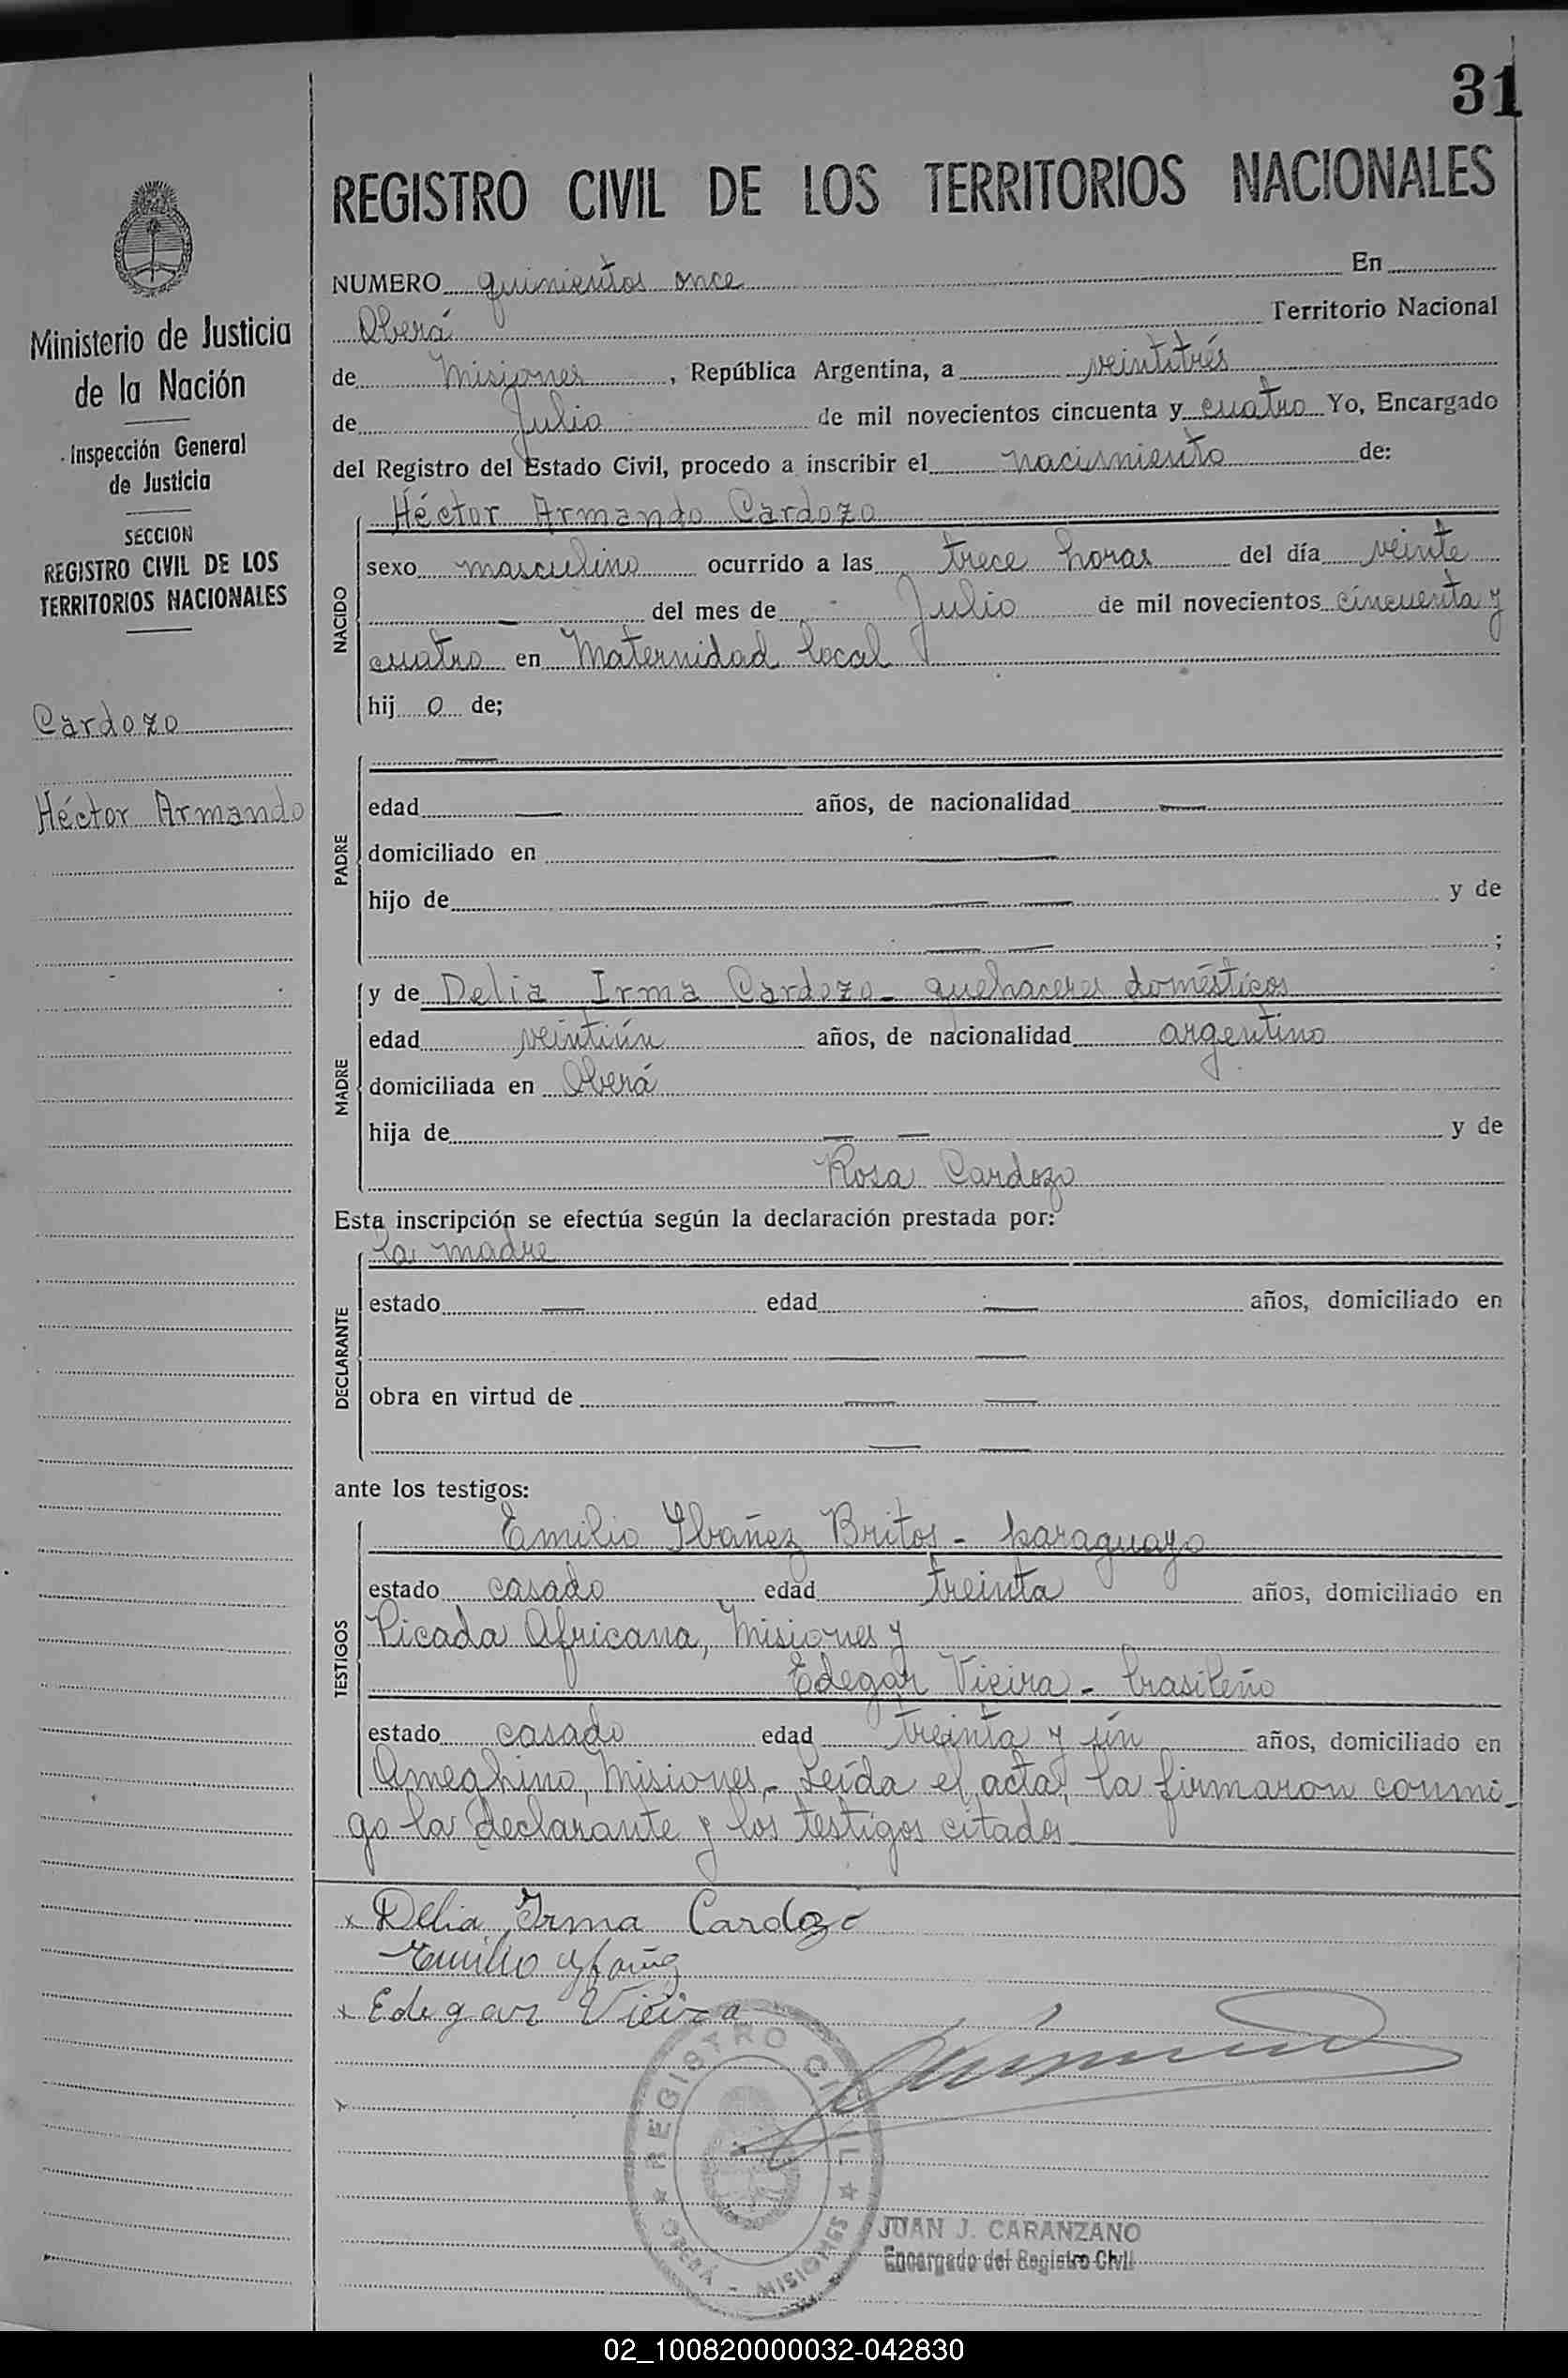 31
REGISTRO CIVIL DE LOS TERRITORIOS NACIONALES
Ministerio de Justicia
de la Nación
Inspección General
de Justicia
SECCION
REGISTRO CIVIL DE LOS
TERRITORIOS NACIONALES
Cardozo
Héctor Armando
NUMERO quinientos once En
Oberá Territorio Nacional
de Misiones, República Argentina, a veintitrés
de Julio de mil novecientos cincuenta y cuatro Yo, Encargado
del Registro del Estado Civil, procedo a inscribir el nacimiento de:
NACIDO
Héctor Armando Cardozo
sexo masculino ocurrido a las trece horas del día veinte
— del mes de Julio de mil novecientos cincuenta y
cuatro en Maternidad local
hij o de;
PADRE
—
edad — años, de nacionalidad —
domiciliado en — —
hijo de — — y de
— — ;
MADRE
y de Delia Irma Cardozo - quehaceres domésticos
edad veintiún años, de nacionalidad argentina
domiciliada en Oberá
hija de — — y de
Rosa Cardozo
Esta inscripción se efectúa según la declaración prestada por:
DECLARANTE
la madre
estado — edad — años, domiciliado en
— —
obra en virtud de — —
— —
ante los testigos:
TESTIGOS
Emilio Ybañez Britos - paraguayo
estado casado edad treinta años, domiciliado en
Picada Africana, Misiones y
Edegar Vieira - brasileño
estado casado edad treinta y ún años, domiciliado en
Ameghino, Misiones.- Leída el acta, la firmaron conmi-
go la declarante y los testigos citados
x Delia Irma Cardozo
Emilio Ybañez
x Edegar Vieira
REGISTRO CIVIL
OBERÁ - MISIONES
JUAN J. CARANZANO
Encargado del Registro Civil
02_100820000032-042830